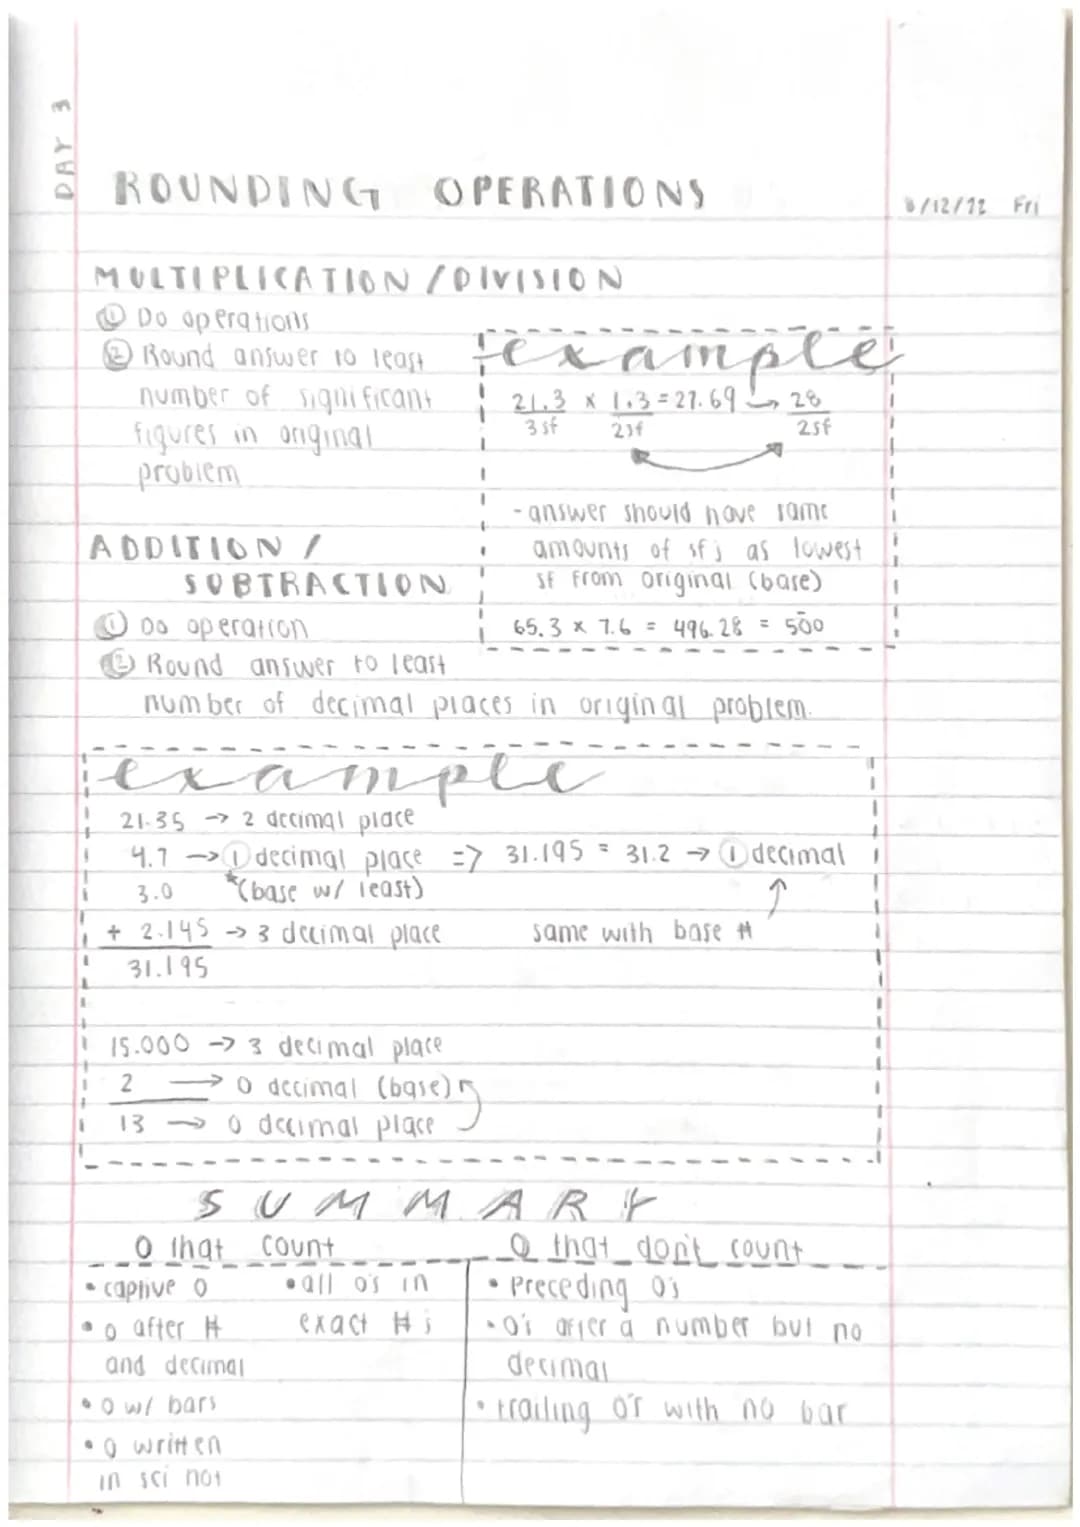 DAY 3
ROUNDING OPERATIONS
8/12/22 Fri
MULTIPLICATION / DIVISION
① Do operations
② Round answer to least
number of significant
figures in original
problem
example
21.3 x 1.3 = 27.69 → 28
3sf 2sf 2sf
- answer should have same
amounts of sfs as lowest
sf from original (base)
65.3 x 7.6 = 496.28 = 50̄0
ADDITION /
SUBTRACTION
① Do operation
② Round answer to least
number of decimal places in original problem.
example
21.35 → 2 decimal place
4.7 → ① decimal place => 31.195 = 31.2 → ① decimal
3.0 *(base w/ least)
+ 2.145 → 3 decimal place same with base #
31.195
15.000 → 3 decimal place
2 → 0 decimal (base)
13 → 0 decimal place
SUMMARY
0 that count
• captive 0
• 0 after #
and decimal
• 0 w/ bars
• 0 written
in sci not
• all 0's in
exact #s
0 that don't count
• Preceding 0's
• 0's after a number but no
decimal
• trailing 0's with no bar